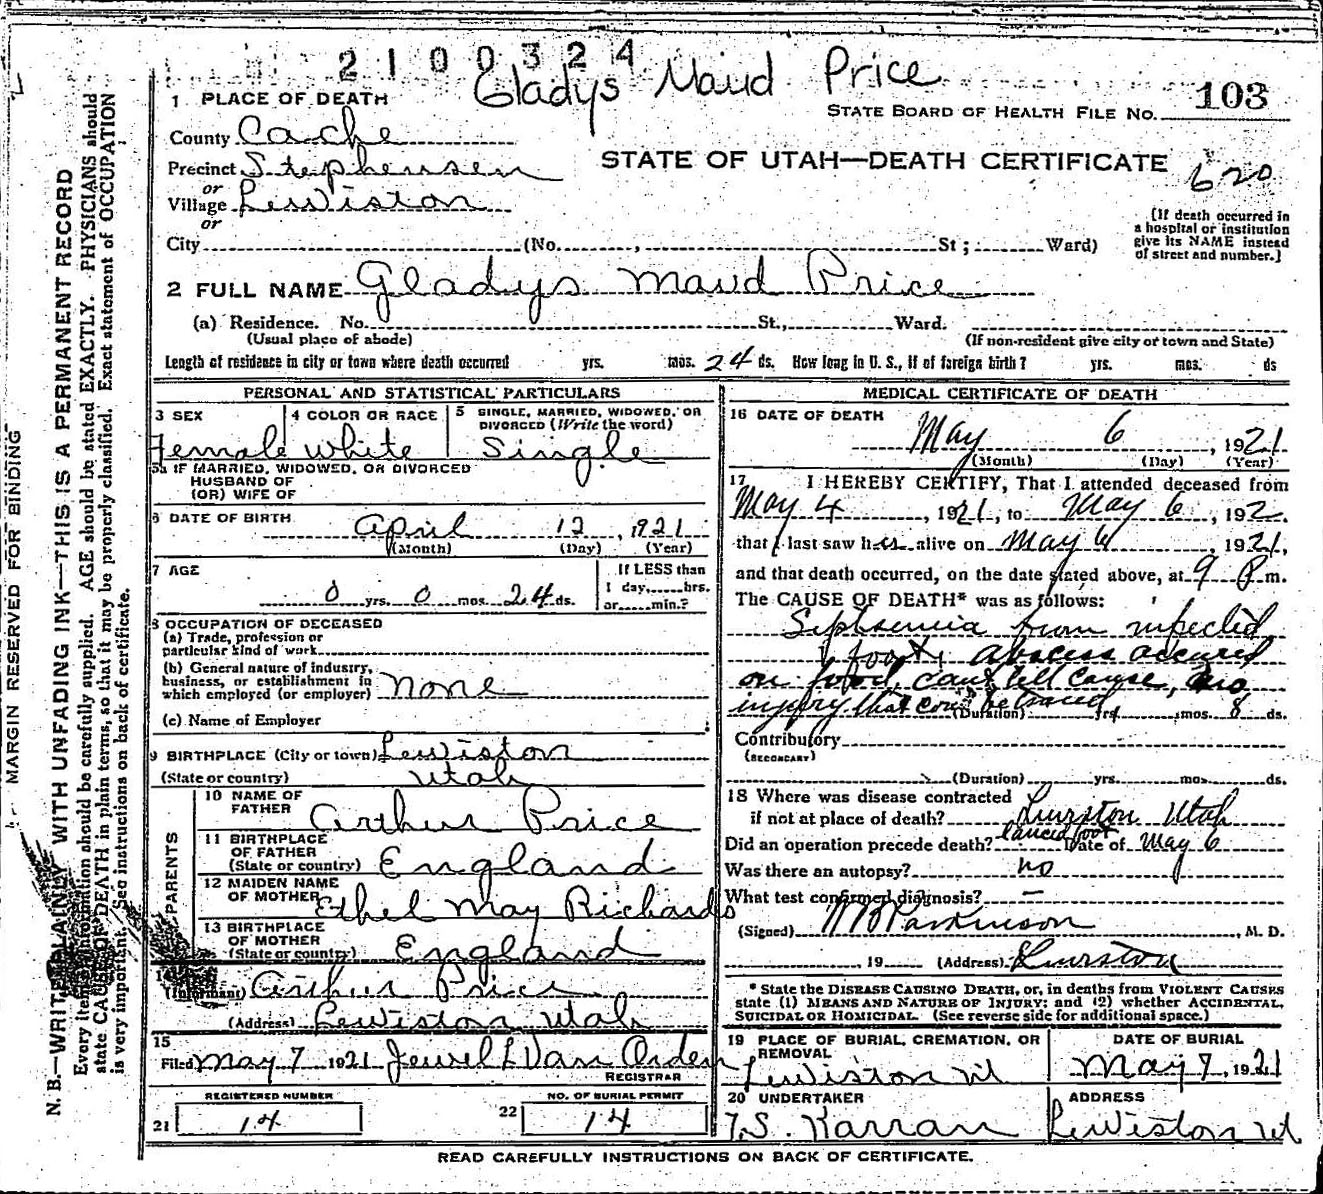 2100324
Gladys Maud Price
1 PLACE OF DEATH
STATE BOARD OF HEALTH FILE NO. 103
County Cache
STATE OF UTAH—DEATH CERTIFICATE
620
Precinct Stephensen
or
Village Lewiston
or
City (No. , St ; Ward)
[If death occurred in
a hospital or institution
give its NAME instead
of street and number.]
2 FULL NAME Gladys Maud Price
(a) Residence. No. St., Ward.
(Usual place of abode) (If non-resident give city or town and State)
Length of residence in city or town where death occurred yrs. mos. 24 ds. How long in U. S., if of foreign birth? yrs. mos. ds
PERSONAL AND STATISTICAL PARTICULARS
3 SEX
Female
4 COLOR OR RACE
White
5 SINGLE, MARRIED, WIDOWED, OR
DIVORCED (Write the word)
Single
5a IF MARRIED, WIDOWED, OR DIVORCED
HUSBAND OF
(OR) WIFE OF
6 DATE OF BIRTH April 12, 1921
(Month) (Day) (Year)
7 AGE
0 yrs. 0 mos. 24 ds.
If LESS than
1 day, hrs.
or min.?
8 OCCUPATION OF DECEASED
(a) Trade, profession or
particular kind of work
(b) General nature of industry,
business, or establishment in
which employed (or employer) none
(c) Name of Employer
9 BIRTHPLACE (City or town) Lewiston
(State or country) Utah
PARENTS
10 NAME OF
FATHER Arthur Price
11 BIRTHPLACE
OF FATHER
(State or country) England
12 MAIDEN NAME
OF MOTHER Ethel May Richards
13 BIRTHPLACE
OF MOTHER
(State or country) England
14
(Informant) Arthur Price
(Address) Lewiston Utah
15
Filed May 7 1921 Jewel L Van Orden
REGISTRAR
REGISTERED NUMBER
21 14
NO. OF BURIAL PERMIT
22 14
MEDICAL CERTIFICATE OF DEATH
16 DATE OF DEATH
May 6, 1921
(Month) (Day) (Year)
17 I HEREBY CERTIFY, That I attended deceased from
May 4, 1921, to May 6, 192
that I last saw h alive on May 6, 1921,
and that death occurred, on the date stated above, at 9 P m.
The CAUSE OF DEATH* was as follows:
Siphsemia from infected
foot, abscess occured
on foot, cant tell cause, no
injury that could be traced
(Duration) yrs. mos. 8 ds.
Contributory
(SECONDARY)
(Duration) yrs. mos. ds.
18 Where was disease contracted
if not at place of death? Lewiston Utah
Did an operation precede death? lanced foot Date of May 6
Was there an autopsy? no
What test confirmed diagnosis? —
(Signed) W B Parkinson, M. D.
19 (Address) Lewiston
* State the DISEASE CAUSING DEATH, or, in deaths from VIOLENT CAUSES
state (1) MEANS AND NATURE OF INJURY; and (2) whether ACCIDENTAL,
SUICIDAL OR HOMICIDAL. (See reverse side for additional space.)
19 PLACE OF BURIAL, CREMATION, OR
REMOVAL
Lewiston Ut
DATE OF BURIAL
May 7, 1921
20 UNDERTAKER
T. S. Karran
ADDRESS
Lewiston Ut
READ CAREFULLY INSTRUCTIONS ON BACK OF CERTIFICATE.
MARGIN RESERVED FOR BINDING
N. B.—WRITE PLAINLY WITH UNFADING INK—THIS IS A PERMANENT RECORD
Every item of information should be carefully supplied. AGE should be stated EXACTLY. PHYSICIANS should
state CAUSE OF DEATH in plain terms, so that it may be properly classified. Exact statement of OCCUPATION
is very important. See instructions on back of certificate.